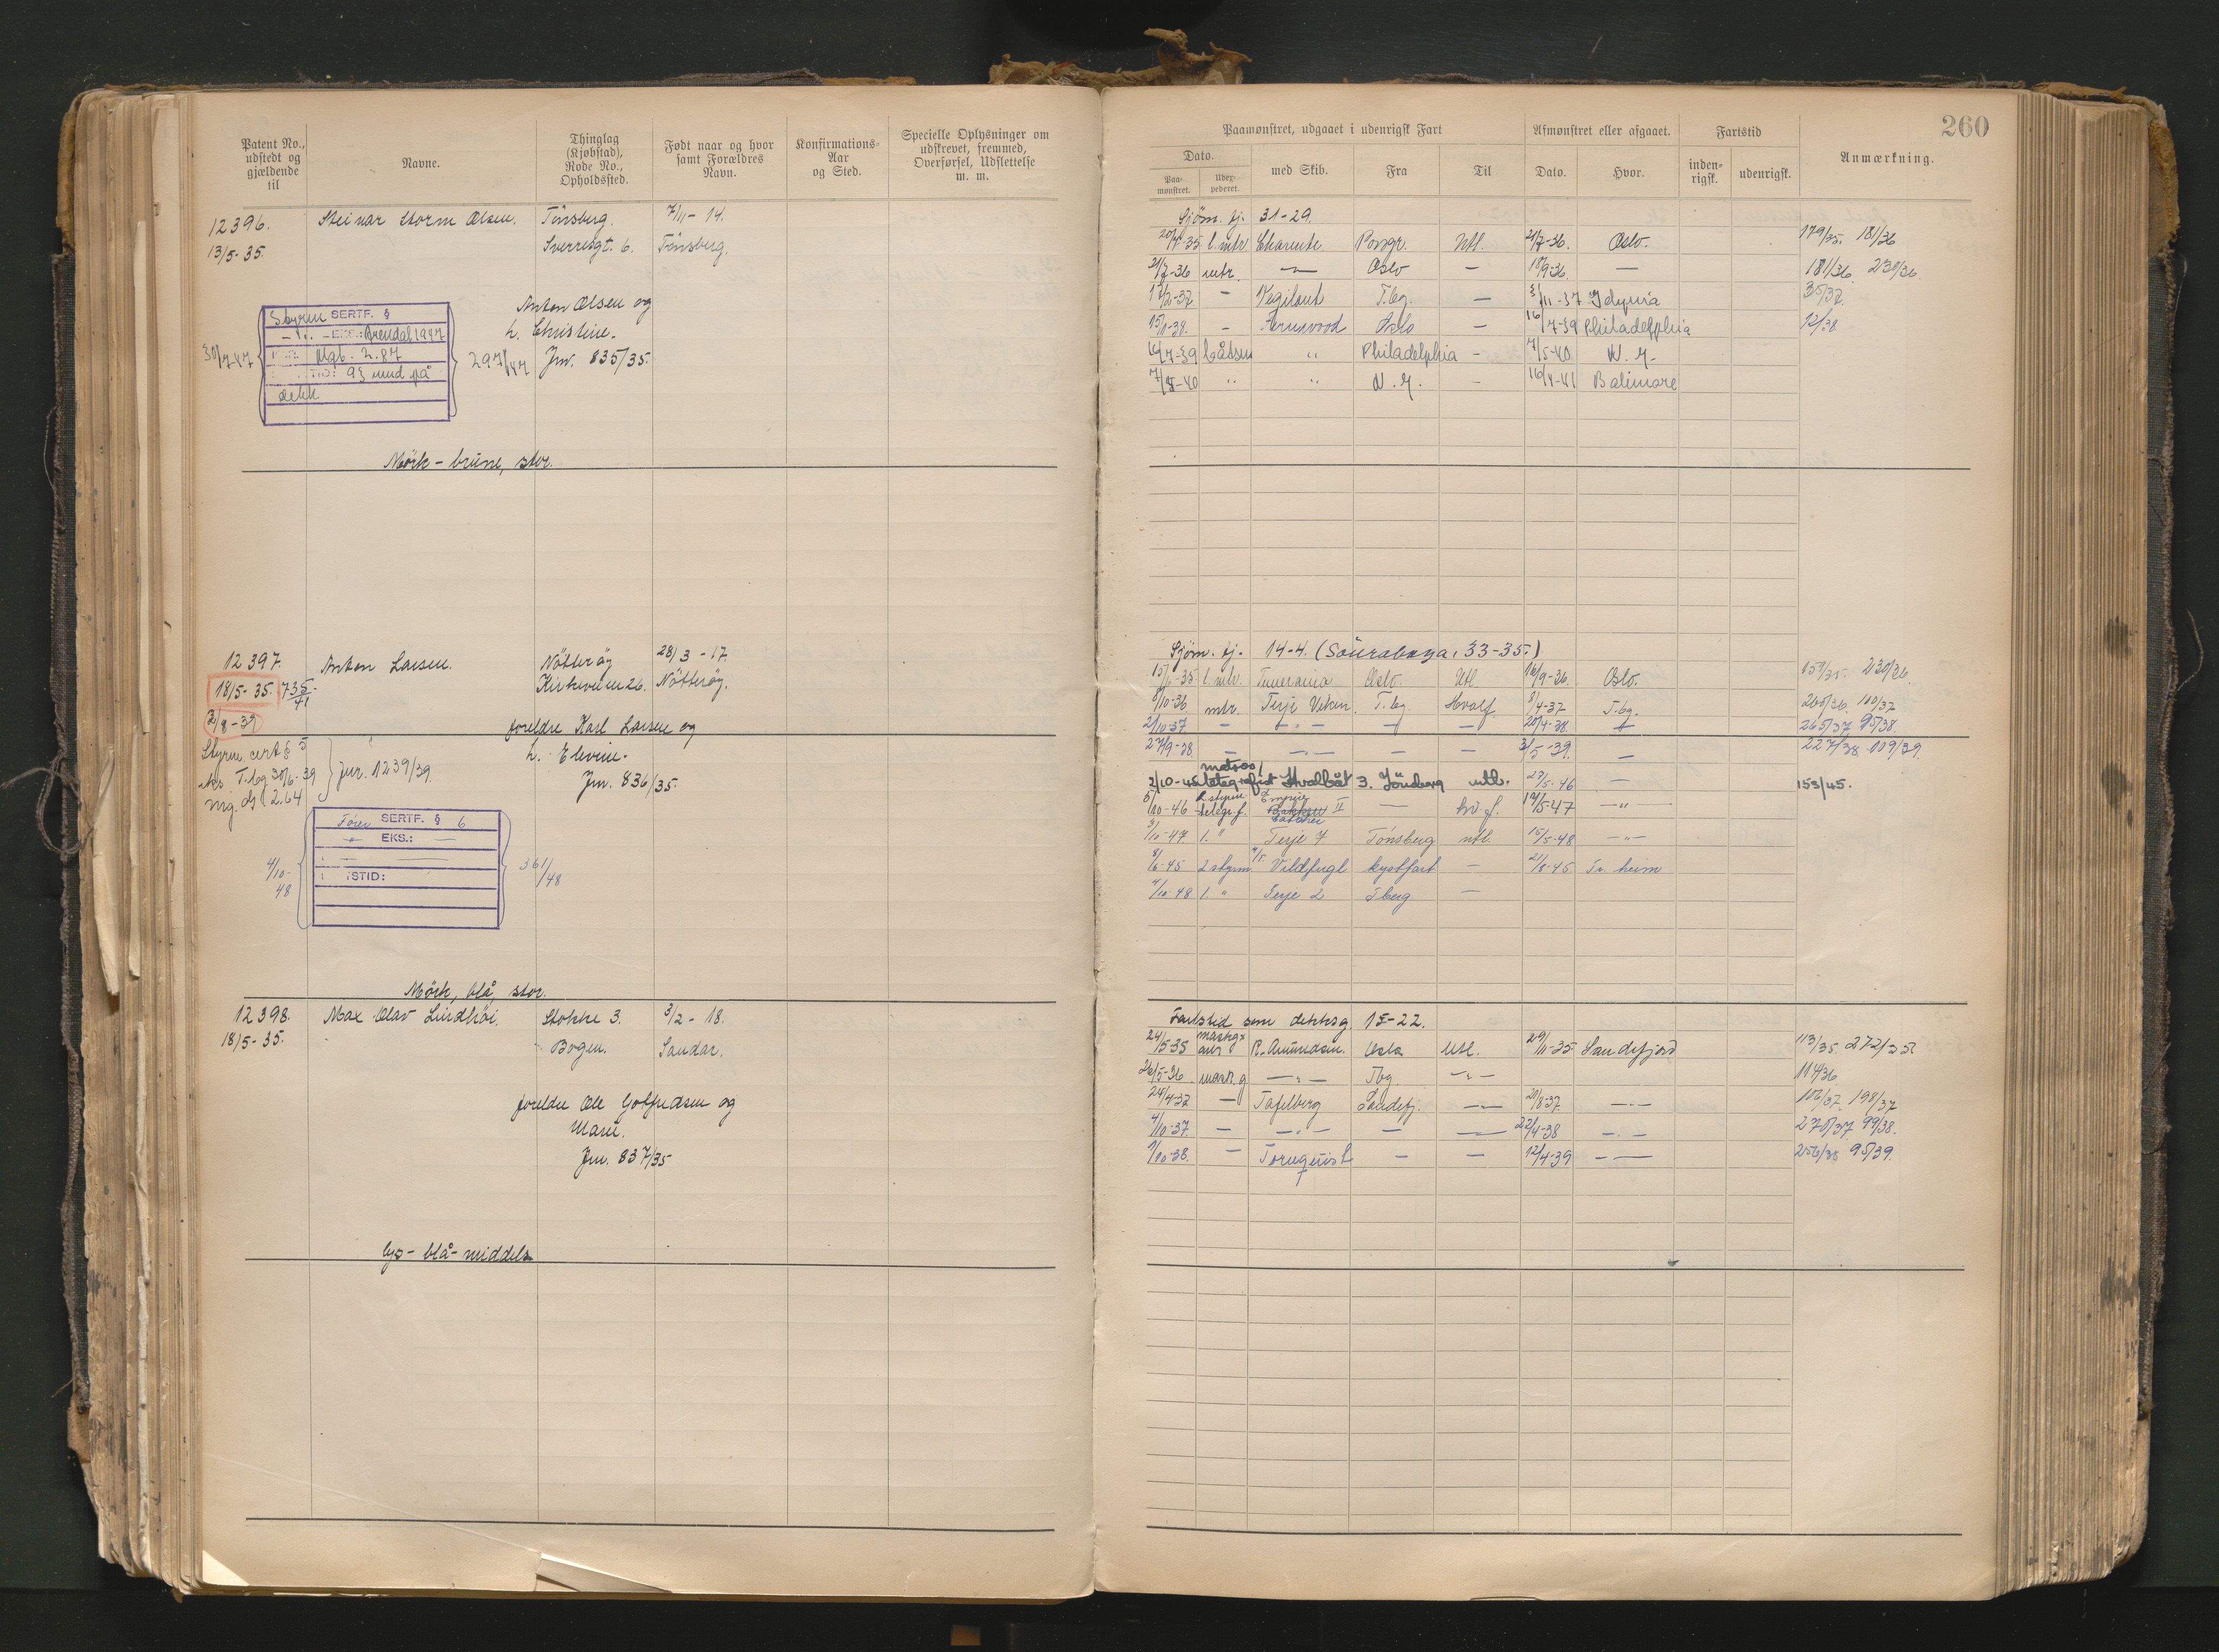 Patent No., udstedt og gjældende til
Navne.
Thinglag (Kjøbstad), Rode No., Opholdssted.
Født naar og hvor samt Forældres Navn.
Konfirmations-Aar og Sted.
Specielle Oplysninger om udskrevet, fremmed, Overførsel, Udslettelse m. m.
12396. Steinar Storm Olsen. Tönsberg. 7/11-14.
13/5-35. Sverresgt. 6. Tönsberg.
Anton Olsen og
h. Christine.
Jnr. 835/35.
30/7-47
Styrm SERTF. §
EKS.: Arendal 1947
Mgb. 2.87
93 mnd på
dekk
297/47
Mörk - brune, stor.
12397. Anton Larsen. Nötteröy 28/3-17.
18/5-35. 735/41 Kirkeveien 26. Nötteröy.
3/8-39
foreldre Karl Larsen og
h. Elevine.
Jnr. 836/35.
Styrm. cert § 5
eks T.bg 30/6-39
mg. d 2.64
jnr. 1239/39.
4/10-48
Fører SERTF. § 6
EKS.:
TSTID:
361/48
Mörk, blå, stor.
12398. Max Olav Lindhöi. Stokke 3. 3/2-18.
18/5-35. Bogen. Sandar.
foreldre Ole Gotfredsen og
Marie.
Jnr. 837/35
lys - blå - middels
260
Paamønstret, udgaaet i udenrigsk Fart
Afmønstret eller afgaaet.
Fartstid
Anmærkning.
Dato.
Paa-mønstret.
Udex-pederet.
med Skib.
Fra
Til
Dato.
Hvor.
inden-rigsk.
udenrigsk.
Sjöm. fj. 31-29.
20/7-35 l.mtr. Charente Porsgr. Utl. 21/7-36. Oslo. 179/35. 181/36
21/7-36 mtr. — Oslo — 18/9-36. — 181/36. 230/36.
12/2-37 — Vegilant T.bg. — 3/11-37 Gdynia 35/37.
15/1-38. — Fernwood Oslo — 16/7-39 Philadelphia 12/38
16/7-39 båtsm " Philadelphia — 7/5-40 N.Y.
7/5-40 " " N.Y. — 16/4-41 Balimore
Sjöm. fj. 14-4. (Sourabaya, 33-35.)
15/6-35 l.mtr. Oslo. Utl 16/9-36. Oslo. 159/35. 230/36.
8/10-36 mtr. Terje Viken. T.bg. Hvalf. 3/4-37 T.bg. 265/36. 100/37
2/10-37 — — — — 20/4-38. — 265/37 95/38.
27/9-38 — — — — 3/5-39. — 227/38 109/39
matros/
2/10-45 telegrafist Hvalbåt 3. Tönsberg utl. 27/5-46 — 153/45.
5/10-46 2 styrm telegr.f. Empire II — hv.f. 19/5-47 — " —
3/10-47 1. " Terje 7 Tönsberg utl. 15/5-48 — " —
8/6-45 2 styrm Vildfugl kystfart — 21/8-45 Tr.heim
4/10-48 1. " Terje 2 Tberg —
Fartstid som dekksg. 15-22.
24/5-35 R. Amundsen. Oslo Utl. 29/11-35 Sandefjord 113/35. 272/35
26/5-36 mask.g — " — Tbg. — " — 114/36
24/4-37 — Tafelberg Sandefj. — 21/8-37. — " — 106/37. 198/37
4/10-37. — — " — — — 22/4-38 — " — 270/37 99/38.
1/10-38. — Tornquist — — 12/4-39 — " — 256/38 95/39.